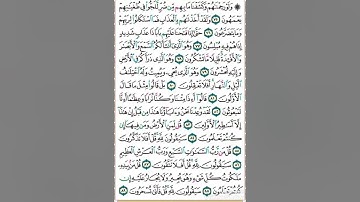 ۞ وَلَوْ رَحِمْنَٰهُمْ وَكَشَفْنَا مَا بِهِم مِّن ضُرٍّ لَّلَجُّوا۟ فِى طُغْيَٰنِهِمْ
يَعْمَهُونَ ٧٥ وَلَقَدْ أَخَذْنَٰهُم بِٱلْعَذَابِ فَمَا ٱسْتَكَانُوا۟ لِرَبِّهِمْ
وَمَا يَتَضَرَّعُونَ ٧٦ حَتَّىٰٓ إِذَا فَتَحْنَا عَلَيْهِم بَابًا ذَا عَذَابٍ شَدِيدٍ
إِذَا هُمْ فِيهِ مُبْلِسُونَ ٧٧ وَهُوَ ٱلَّذِىٓ أَنشَأَ لَكُمُ ٱلسَّمْعَ وَٱلْأَبْصَٰرَ
وَٱلْأَفْـِٔدَةَ قَلِيلًا مَّا تَشْكُرُونَ ٧٨ وَهُوَ ٱلَّذِى ذَرَأَكُمْ فِى ٱلْأَرْضِ
وَإِلَيْهِ تُحْشَرُونَ ٧٩ وَهُوَ ٱلَّذِى يُحْىِۦ وَيُمِيتُ وَلَهُ ٱخْتِلَٰفُ
ٱلَّيْلِ وَٱلنَّهَارِ أَفَلَا تَعْقِلُونَ ٨٠ بَلْ قَالُوا۟ مِثْلَ مَا قَالَ
ٱلْأَوَّلُونَ ٨١ قَالُوٓا۟ أَءِذَا مِتْنَا وَكُنَّا تُرَابًا وَعِظَٰمًا أَءِنَّا
لَمَبْعُوثُونَ ٨٢ لَقَدْ وُعِدْنَا نَحْنُ وَءَابَآؤُنَا هَٰذَا مِن قَبْلُ إِنْ هَٰذَآ
إِلَّآ أَسَٰطِيرُ ٱلْأَوَّلِينَ ٨٣ قُل لِّمَنِ ٱلْأَرْضُ وَمَن فِيهَآ إِن
كُنتُمْ تَعْلَمُونَ ٨٤ سَيَقُولُونَ لِلَّهِ قُلْ أَفَلَا تَذَكَّرُونَ ٨٥
قُلْ مَن رَّبُّ ٱلسَّمَٰوَٰتِ ٱلسَّبْعِ وَرَبُّ ٱلْعَرْشِ ٱلْعَظِيمِ ٨٦
سَيَقُولُونَ لِلَّهِ قُلْ أَفَلَا تَتَّقُونَ ٨٧ قُلْ مَنۢ بِيَدِهِۦ
مَلَكُوتُ كُلِّ شَىْءٍ وَهُوَ يُجِيرُ وَلَا يُجَارُ عَلَيْهِ إِن
كُنتُمْ تَعْلَمُونَ ٨٨ سَيَقُولُونَ لِلَّهِ قُلْ فَأَنَّىٰ تُسْحَرُونَ ٨٩